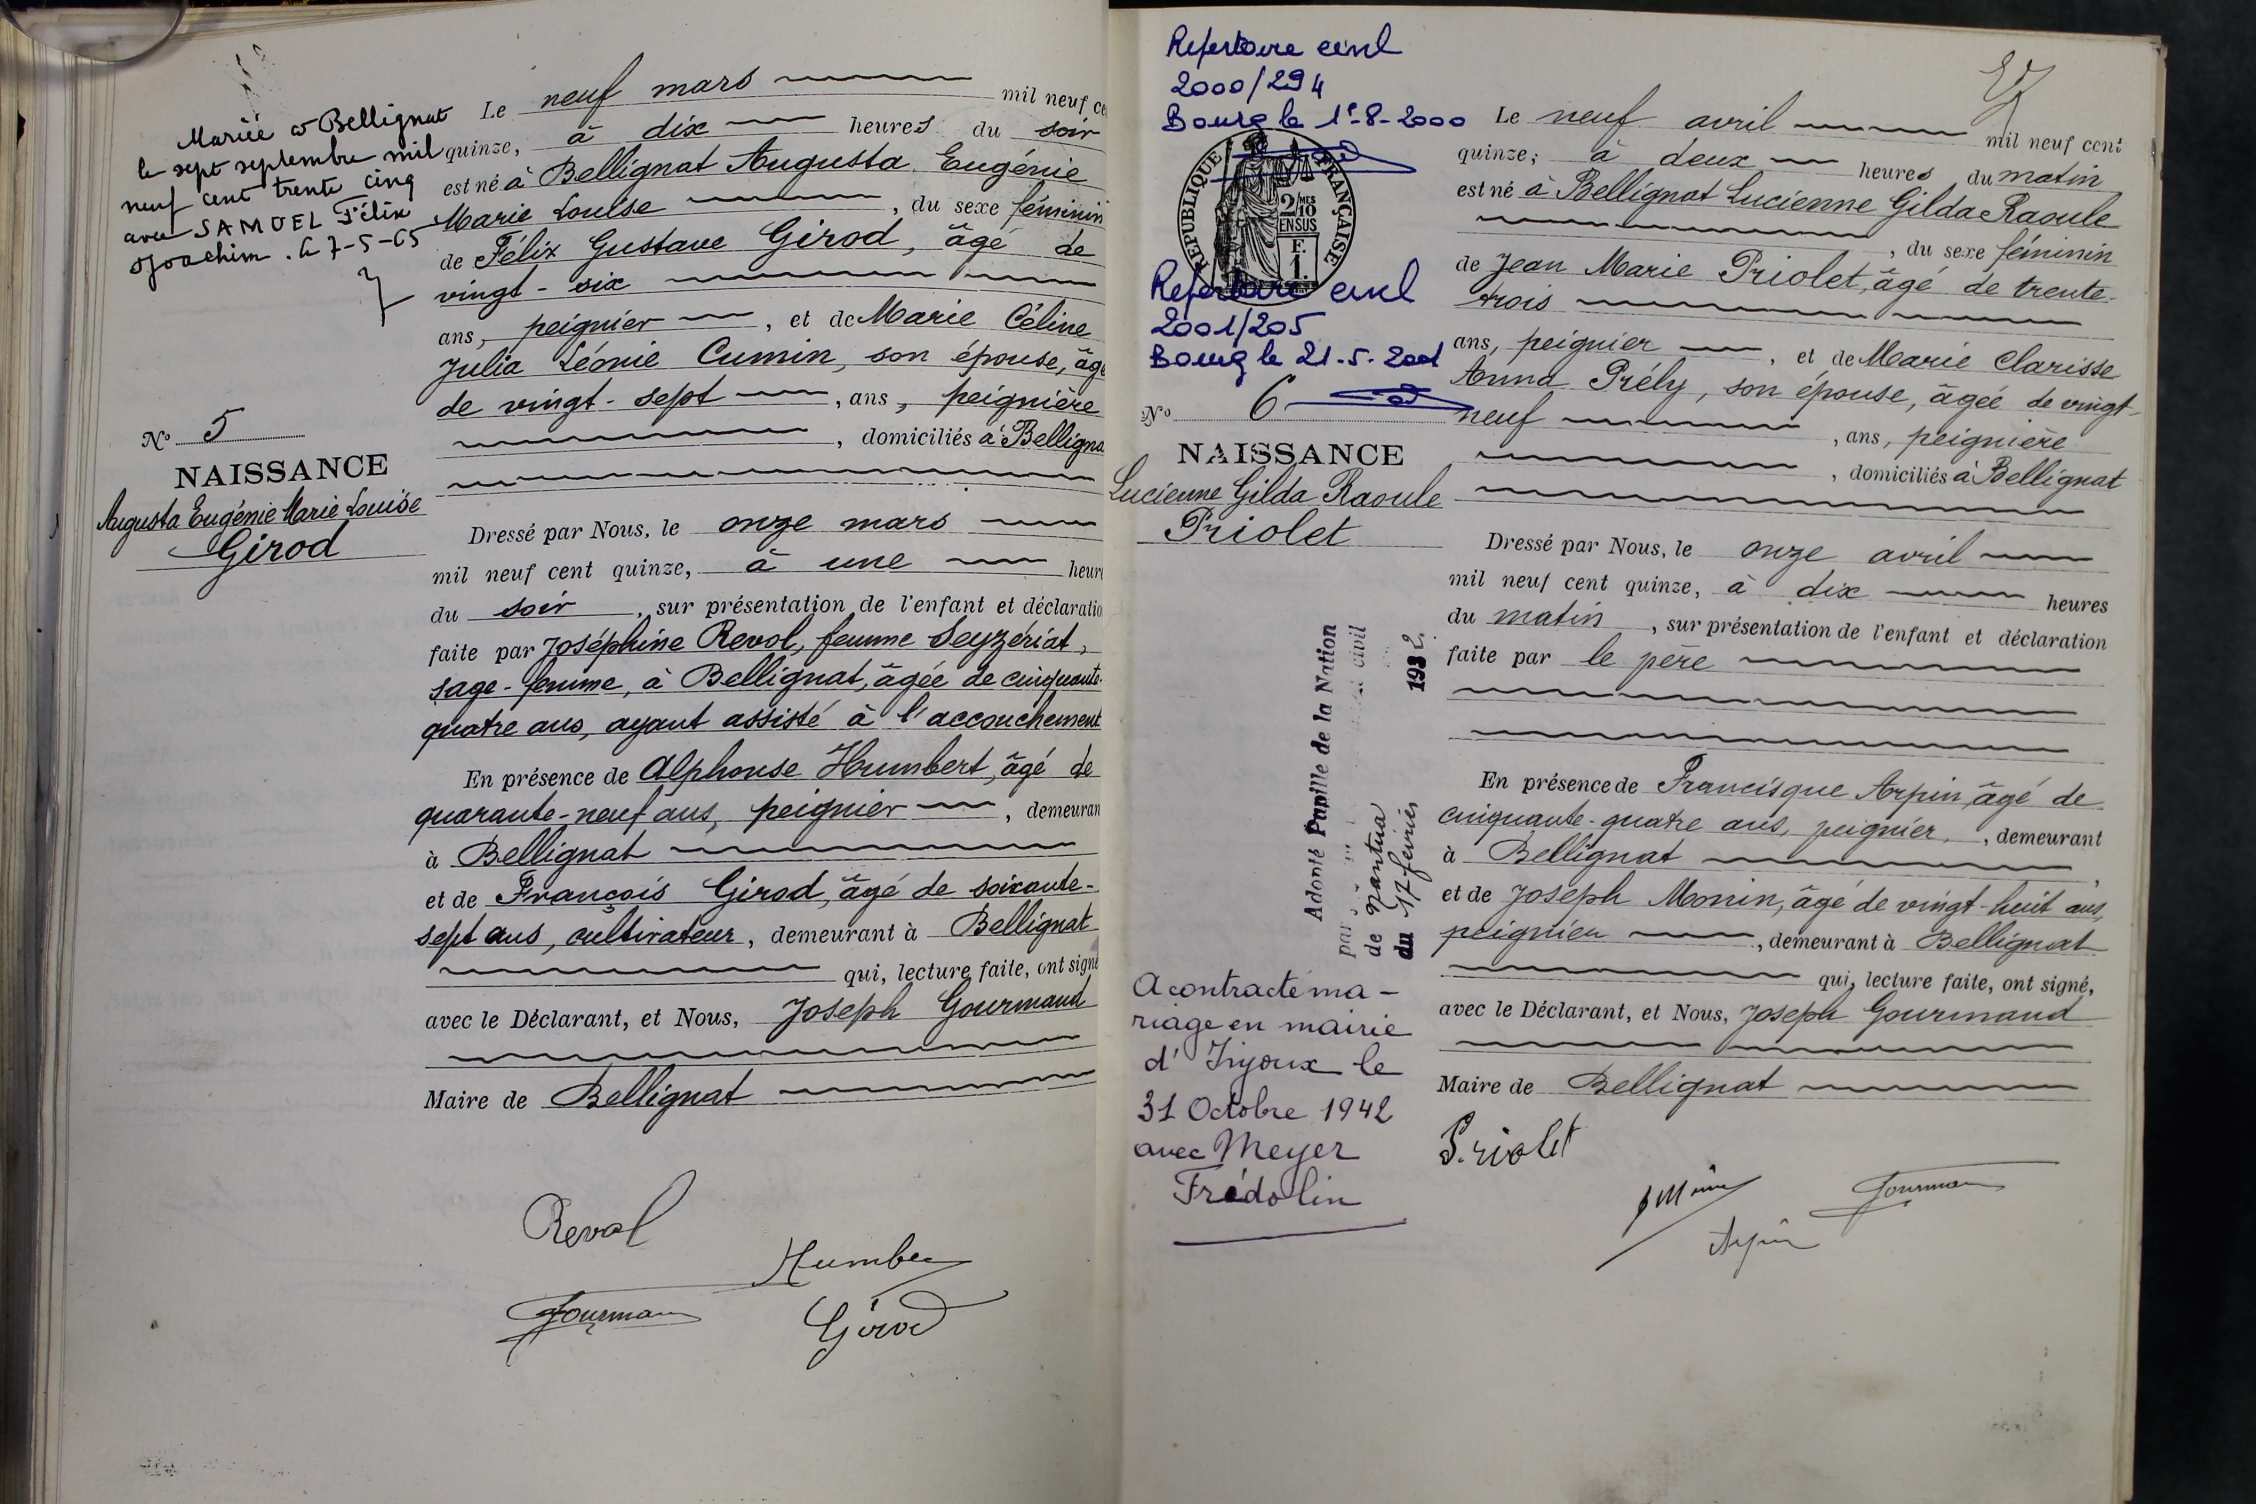 Mariée à Bellignat
le sept septembre mil
neuf cent trente cinq
avec SAMUEL Félix
Joachim. le 7-5-65
N° 5
NAISSANCE
Augusta Eugénie Marie Louise
Girod
Le neuf mars mil neuf ce
quinze, à dix heures du soir
est né à Bellignat Augusta Eugénie
Marie Louise , du sexe féminin
de Félix Gustave Girod, âgé de
vingt-six
ans, peignier , et de Marie Céline
Julia Léonie Cumin, son épouse, âgé
de vingt-sept , ans, peignière
, domiciliés à Belligna
Dressé par Nous, le onze mars
mil neuf cent quinze, à une heure
du soir , sur présentation de l'enfant et déclaratio
faite par Joséphine Revol, femme Seyzériat,
sage-femme, à Bellignat, âgée de cinquante-
quatre ans, ayant assisté à l'accouchement
En présence de Alphonse Humbert, âgé de
quarante-neuf ans, peignier , demeuran
à Bellignat
et de François Girod, âgé de soixante-
sept ans, cultivateur, demeurant à Bellignat
qui, lecture faite, ont signé
avec le Déclarant, et Nous, Joseph Gourmand
Maire de Bellignat
Revol
Humber
Gourman
Girod
Repertoire civil
2000/294
Bourg le 1e-8-2000
RÉPUBLIQUE FRANÇAISE
2/10 MES
EN SUS
F.
1.
Repertoire civil
2001/205
Bourg le 21-5-2001
N° 6
NAISSANCE
Lucienne Gilda Raoule
Priolet
Adopté Pupille de la Nation
par civil
de Nantua
du 17 février 1932.
A contracté ma-
riage en mairie
d'Injoux le
31 Octobre 1942
avec Meyer
Frédolin
Le neuf avril mil neuf cent
quinze, à deux heures du matin
est né à Bellignat Lucienne Gilda Raoule
, du sexe féminin
de Jean Marie Priolet, âgé de trente-
trois
ans, peignier , et de Marie Clarisse
Anna Prély, son épouse, âgée de vingt-
neuf , ans, peignière
, domiciliés à Bellignat
Dressé par Nous, le onze avril
mil neuf cent quinze, à dix heures
du matin , sur présentation de l'enfant et déclaration
faite par le père
En présence de Francisque Arpin, âgé de
cinquante-quatre ans, peignier, , demeurant
à Bellignat ,
et de Joseph Monin, âgé de vingt-huit ans,
peignier , demeurant à Bellignat
qui, lecture faite, ont signé,
avec le Déclarant, et Nous, Joseph Gourmand
Maire de Bellignat
Priolet
Gourman
Arpin